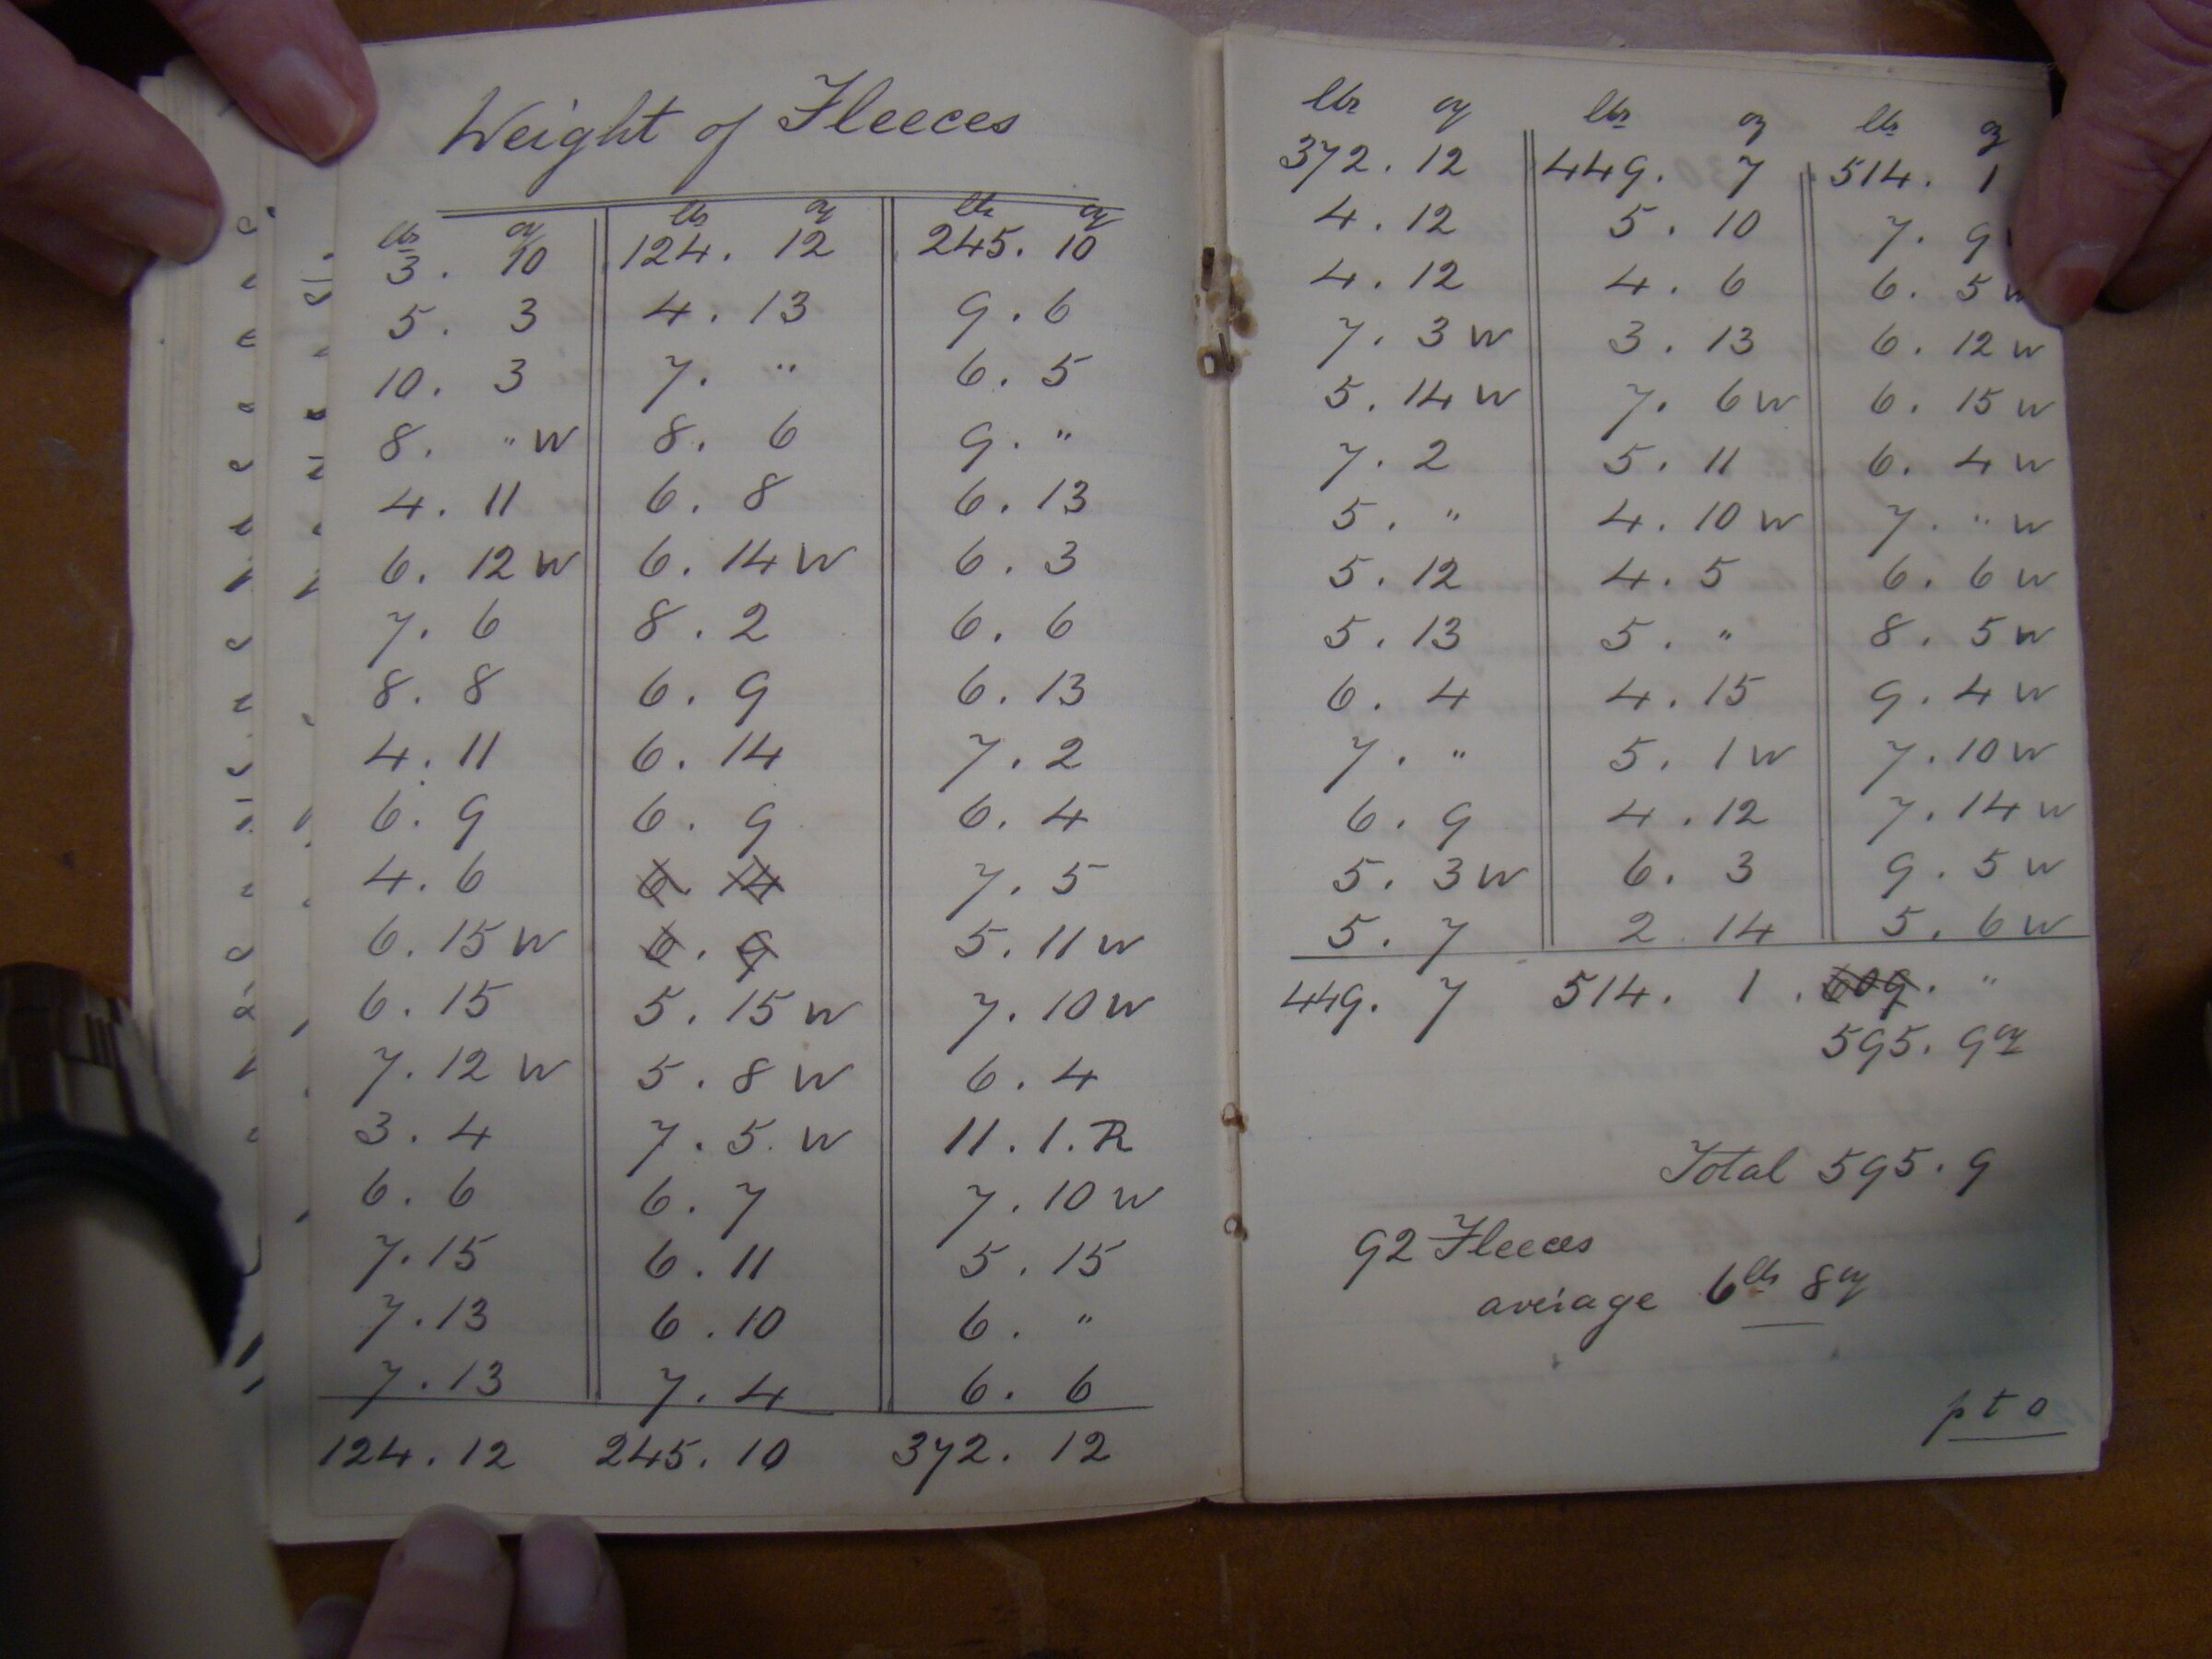 Weight of Fleeces
lbs oz
3. 10
5. 3
10. 3
8. " W
4. 11
6. 12 W
7. 6
8. 8
4. 11
6. 9
4. 6
6. 15 W
6. 15
7. 12 W
3. 4
6. 6
7. 15
7. 13
7. 13
124. 12
lbs oz
124. 12
4. 13
7. "
8. 6
6. 8
6. 14 W
8. 2
6. 9
6. 14
6. 9
6. 14
6. 9
5. 15 W
5. 8 W
7. 5. W
6. 7
6. 11
6. 10
7. 4
245. 10
lbs oz
245. 10
9. 6
6. 5
9. "
6. 13
6. 3
6. 6
6. 13
7. 2
6. 4
7. 5
5. 11 W
7. 10 W
6. 4
11. 1. R
7. 10 W
5. 15
6. "
6. 6
372. 12
lbs oz
372. 12
4. 12
4. 12
7. 3 W
5. 14 W
7. 2
5. "
5. 12
5. 13
6. 4
7. "
6. 9
5. 3 W
5. 7
449. 7
lbs oz
449. 7
5. 10
4. 6
3. 13
7. 6 W
5. 11
4. 10 W
4. 5
5. "
4. 15
5. 1 W
4. 12
6. 3
2 14
514. 1.
lbs oz
514. 1
7. 9
6. 5 W
6. 12 W
6. 15 W
6. 4 W
7. " W
6. 6 W
8. 5 W
9. 4 W
7. 10 W
7. 14 W
9. 5 W
5. 6 W
609. "
595. 9 oz
Total 595. 9
92 Fleeces
average 6 lbs 8 oz
p t o